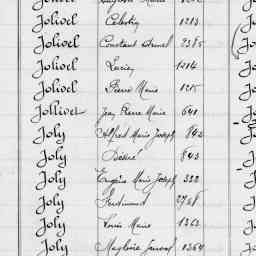 Jolivel Célestin 1213
Jolivel Constant Armel 2385
Jolivel Lucien 1214
Jolivel Pierre Marie 1215
Jollivet Jean Pierre Marie 641
Joly Alfred Marie Joseph 842
Joly Désiré 843
Joly Eugène Marie Joseph 322
Joly Ferdinand
Joly Louis Marie 1363
Joly Magloire 1364